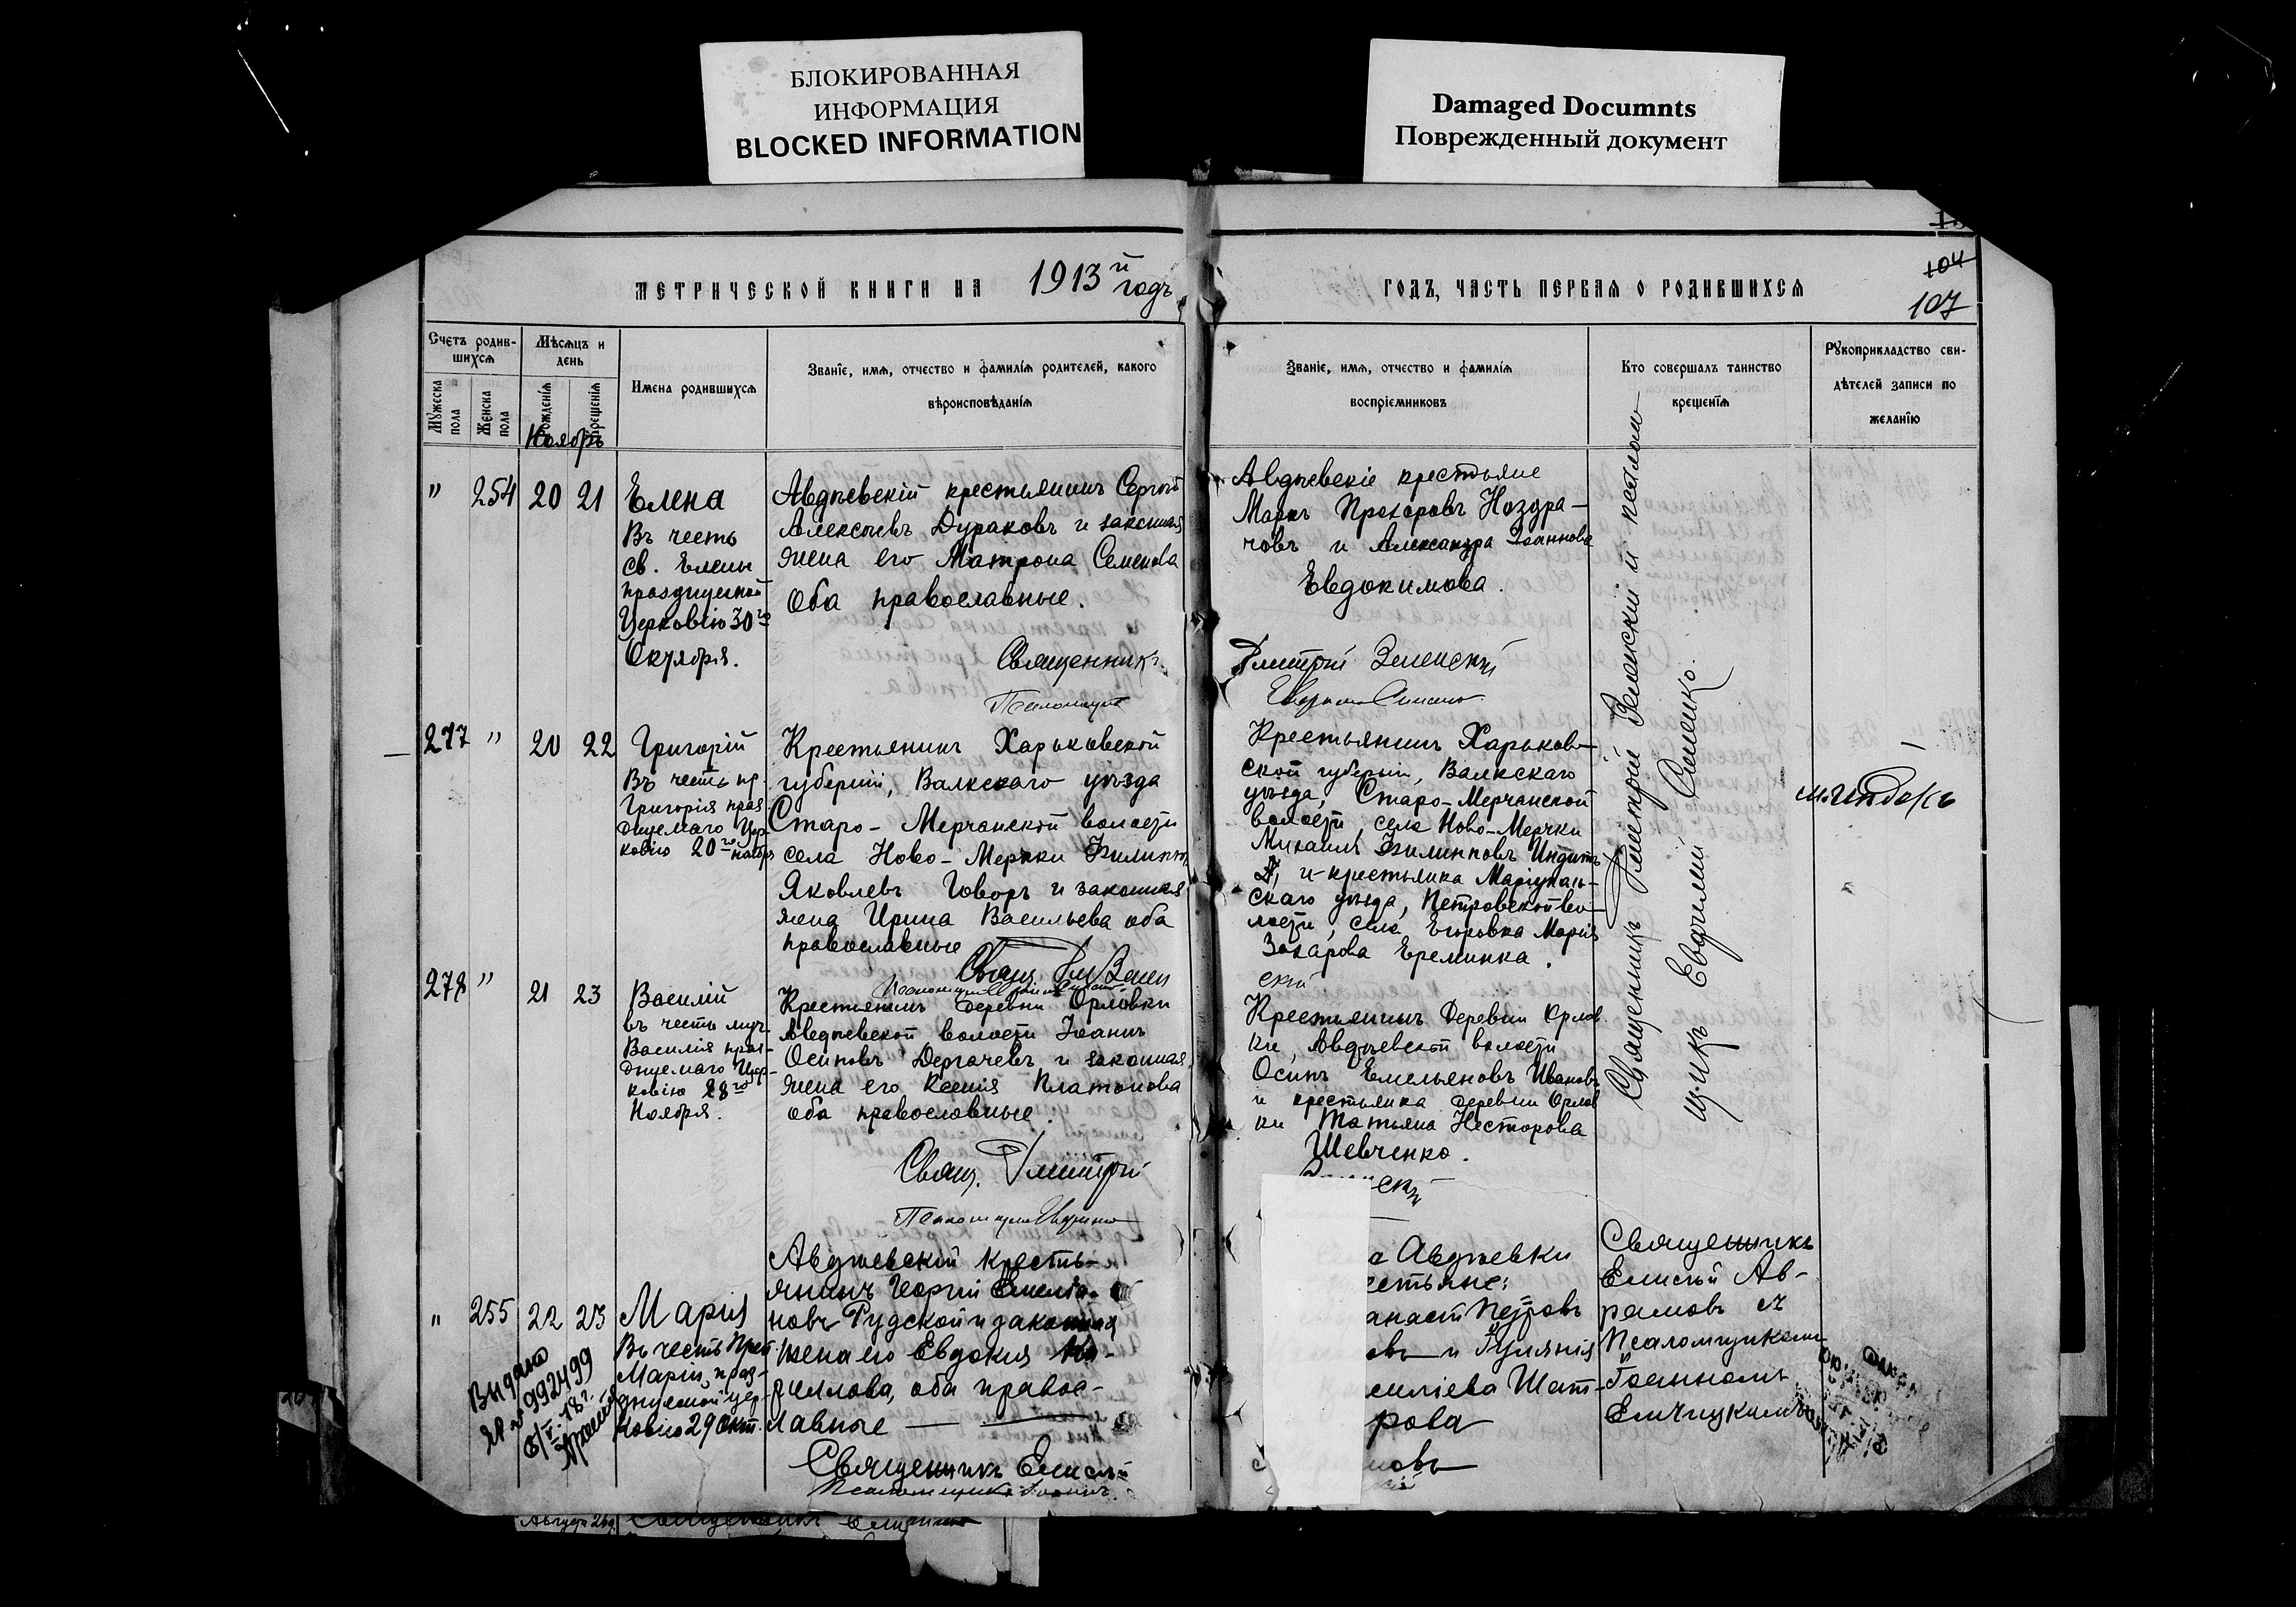 БЛОКИРОВАННАЯ
ИНФОРМАЦИЯ
BLOCKED INFORMATION
Damaged Documnts
Поврежденный документ
104
107
МЕТРИЧЕСКОЙ КНИГИ НА 1913 й годъ
ГОДЪ, ЧАСТЬ ПЕРВАЯ О РОДИВШИХСЯ
Счетъ родив-
шихся
Мужеска
пола
Женска
пола
Мѣсяцъ и
день
Рожденія
Крещенія
Имена родившихся
Званіе, имя, отчество и фамилія родителей, какого
вѣроисповѣданія
Званіе, имя, отчество и фамилія
воспріемниковъ
Кто совершалъ таинство
крещенія
Рукоприкладство сви-
дѣтелей записи по
желанію
Ноябрь
" 254 20 21
Елена
Въ честь
св. Елены
празднуемой
Церковію 30го
Октября.
Авдѣевскій крестьянинъ Сергѣй
Алексѣевъ Дураковъ и законная
жена его Матрона Семенова
Оба православные.
Священникъ
Псаломщикъ
Авдѣевскіе крестьяне
Маркъ Прохоровъ Ноздра-
човъ и Александра Іоаннова
Евдокимова.
Дмитрій Зеленскій
Священникъ Дмитрій Зеленскій и псалом-
щикъ Евфимій Сименко.
277 " 20 22
Григорій
Въ честь пр.
Григорія праз
днуемаго Цер-
ковію 20го ноября
Крестьянинъ Харьковской
губерніи, Валкскаго уѣзда
Старо-Мерчанской волости
села Ново-Мерчки Филиппъ
Яковлевъ Говоръ и законная
жена Ирина Васильева оба
православные
Свящ. Дм. Зелен
скій
Крестьянинъ Харьков-
ской губерніи, Валкскаго
уѣзда, Старо-Мерчанской
волости, села Ново-Мерчки
Михаилъ Филипповъ
и крестьянка Маріуполь-
скаго уѣзда, Петровской во-
лости, села Егоровка Марія
Захарова Еременка.
278 " 21 23
Василій
въ честь муч.
Василія праз-
днуемаго Цер-
ковію 28го
Ноября.
Крестьянинъ деревни Орловки
Авдѣевской волости Іоаннъ
Осиповъ Дергачевъ и законная
жена его Ксенія Платонова
Оба православные.
Свящ. Дмитрій
Псаломщикъ Евфимій
Крестьянинъ деревни Орлов
ки, Авдѣевской волости
Осипъ Емельяновъ Ивановъ
и крестьянка деревни Орлов
ки Татьяна Несторова
Шевченко.
" 255 22 23
Марія
Въ честь Преп.
Маріи, праз-
днуемой цер-
ковію 29 окт.
Выдано
992499
18 г.
Авдѣевскій кресть-
янинъ Георгій Емелья-
новъ Рудской и законная
жена его Евдокія Ки-
риллова, оба правос-
лавные
Священникъ Елисѣй
Псаломщикъ Іоаннъ
а Авдѣевки
естьяне:
анасій Петровъ
овъ и Іуліянія
силіева Шат-
рова
мовъ
Священникъ
Елисѣй Ав-
рамовъ съ
Псаломщикомъ
Іоанномъ
Елчицкимъ